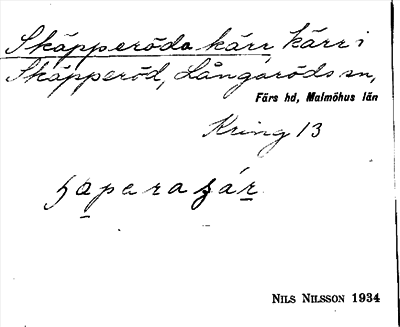 Skäpperöda kärr, kärr i
Skäpperöd, Långaröds sn,
Färs hd, Malmöhus län
Kring 13
NILS NILSSON 1934